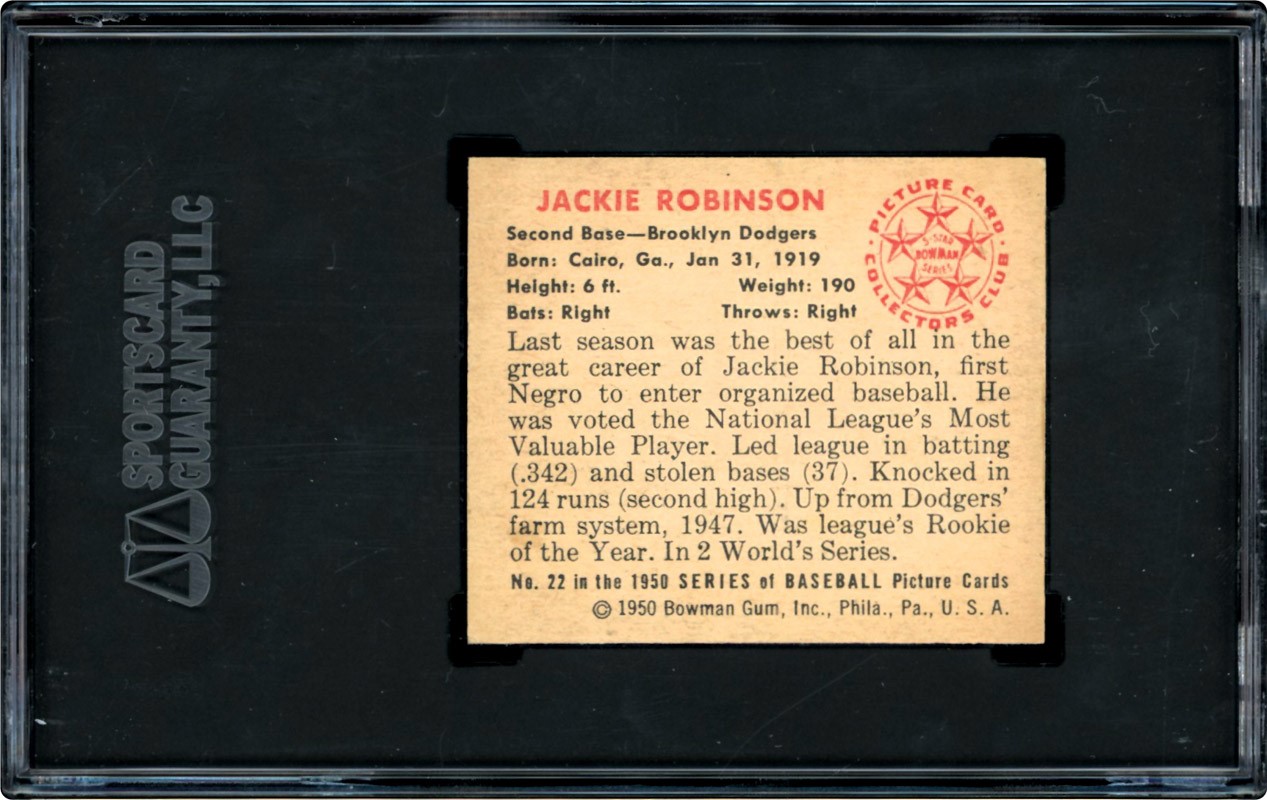 SPORTSCARD
GUARANTY,LLC
JACKIE ROBINSON
Second Base—Brooklyn Dodgers
Born: Cairo, Ga., Jan 31, 1919
Height: 6 ft. Weight: 190
Bats: Right Throws: Right
PICTURE CARD
COLLECTORS CLUB
5-STAR
BOWMAN
SERIES
Last season was the best of all in the
great career of Jackie Robinson, first
Negro to enter organized baseball. He
was voted the National League's Most
Valuable Player. Led league in batting
(.342) and stolen bases (37). Knocked in
124 runs (second high). Up from Dodgers'
farm system, 1947. Was league's Rookie
of the Year. In 2 World's Series.
No. 22 in the 1950 SERIES of BASEBALL Picture Cards
© 1950 Bowman Gum, Inc., Phila., Pa., U. S. A.